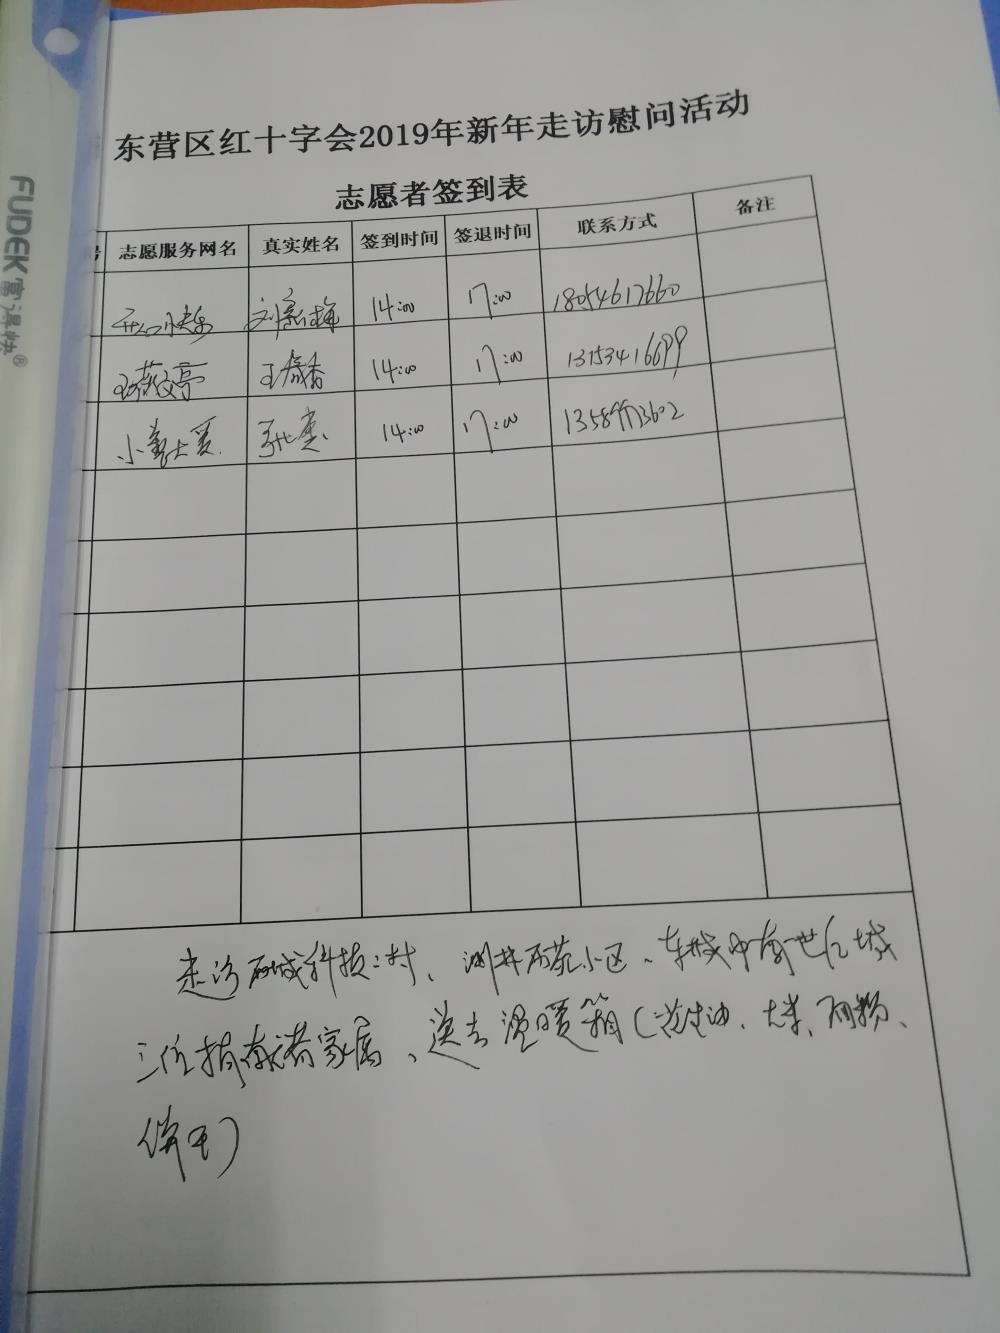 FUDEK 富得快®
东营区红十字会2019年新年走访慰问活动
志愿者签到表
号 志愿服务网名 真实姓名 签到时间 签退时间 联系方式 备注
开心快乐 14:00 17:00 18054617660
王 14:00 17:00 13153416699
小 14:00 17:00
走访西城科技二村、测井西苑小区、东城中南世纪城
三位捐献者家属、送去温暖箱(花生油、大米、面粉、